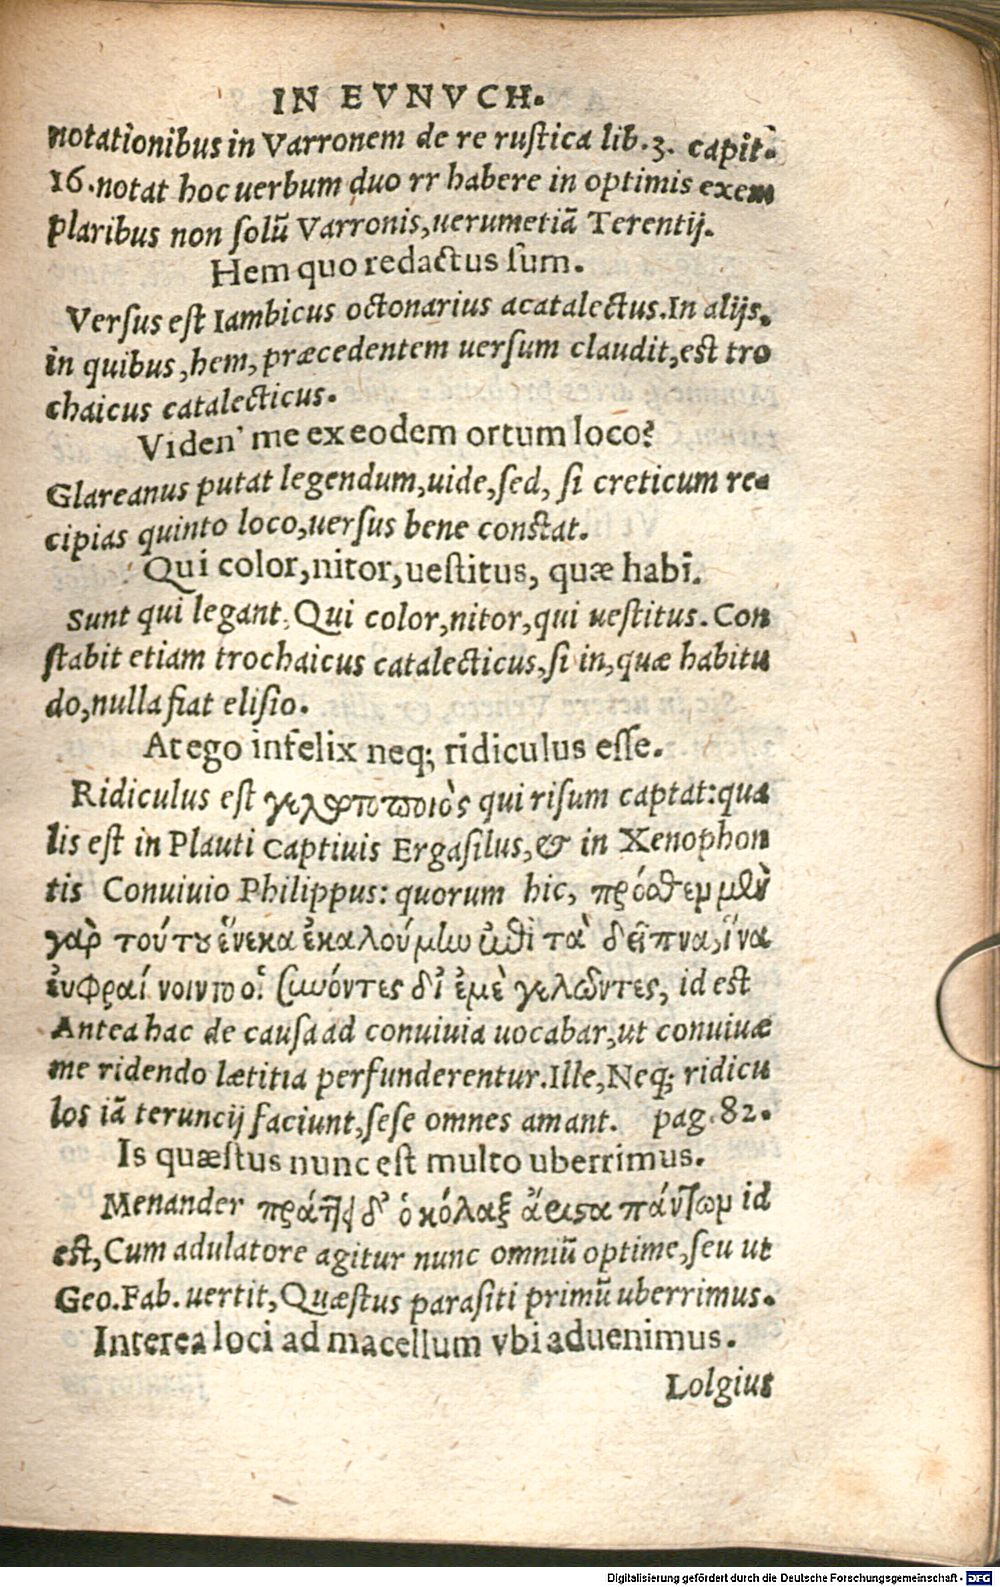 IN EVNVCH.
notationibus in Varronem de re rustica lib. 3. capit.
16. notat hoc uerbum duo rr habere in optimis exem
plaribus non solũ Varronis, uerumetiã Terentij.
Hem quo redactus sum.
Versus est Iambicus octonarius acatalectus. In alijs,
in quibus, hem, præcedentem uersum claudit, est tro
chaicus catalecticus.
Viden' me ex eodem ortum loco?
Glareanus putat legendum, uide, sed, si creticum re-
cipias quinto loco, uersus bene constat.
Qui color, nitor, uestitus, quæ habĩ.
Sunt qui legant, Qui color, nitor, qui uestitus. Con
stabit etiam trochaicus catalecticus, si in, quæ habitu
do, nulla fiat elisio.
At ego infelix neq; ridiculus esse.
Ridiculus est γελωτοποιὸς qui risum captat: qua
lis est in Plauti Captiuis Ergasilus, & in Xenophon
tis Conuiuio Philippus: quorum hic, πρόσθεμ μὲν
γαρ̀ τούτου ἕνεκα ἐκαλούμην ἐπὶ τα` δεῖπνα, ἵνα
ἐυφραίνοιντο οἱ συνόντες δι' ἐμὲ γελῶντες, id est
Antea hac de causa ad conuiuia uocabar, ut conuiuæ
me ridendo lætitia perfunderentur. Ille, Neq; ridicu
los iã teruncij faciunt, sese omnes amant. pag. 82.
Is quæstus nunc est multo uberrimus.
Menander πράττει δ' ὁ κόλαξ ἄριστα πάντωμ id
est, Cum adulatore agitur nunc omniũ optime, seu ut
Geo. Fab. uertit, Quæstus parasiti primũ uberrimus.
Interea loci ad macellum vbi aduenimus.
Lolgius
Digitalisierung gefördert durch die Deutsche Forschungsgemeinschaft - DFG